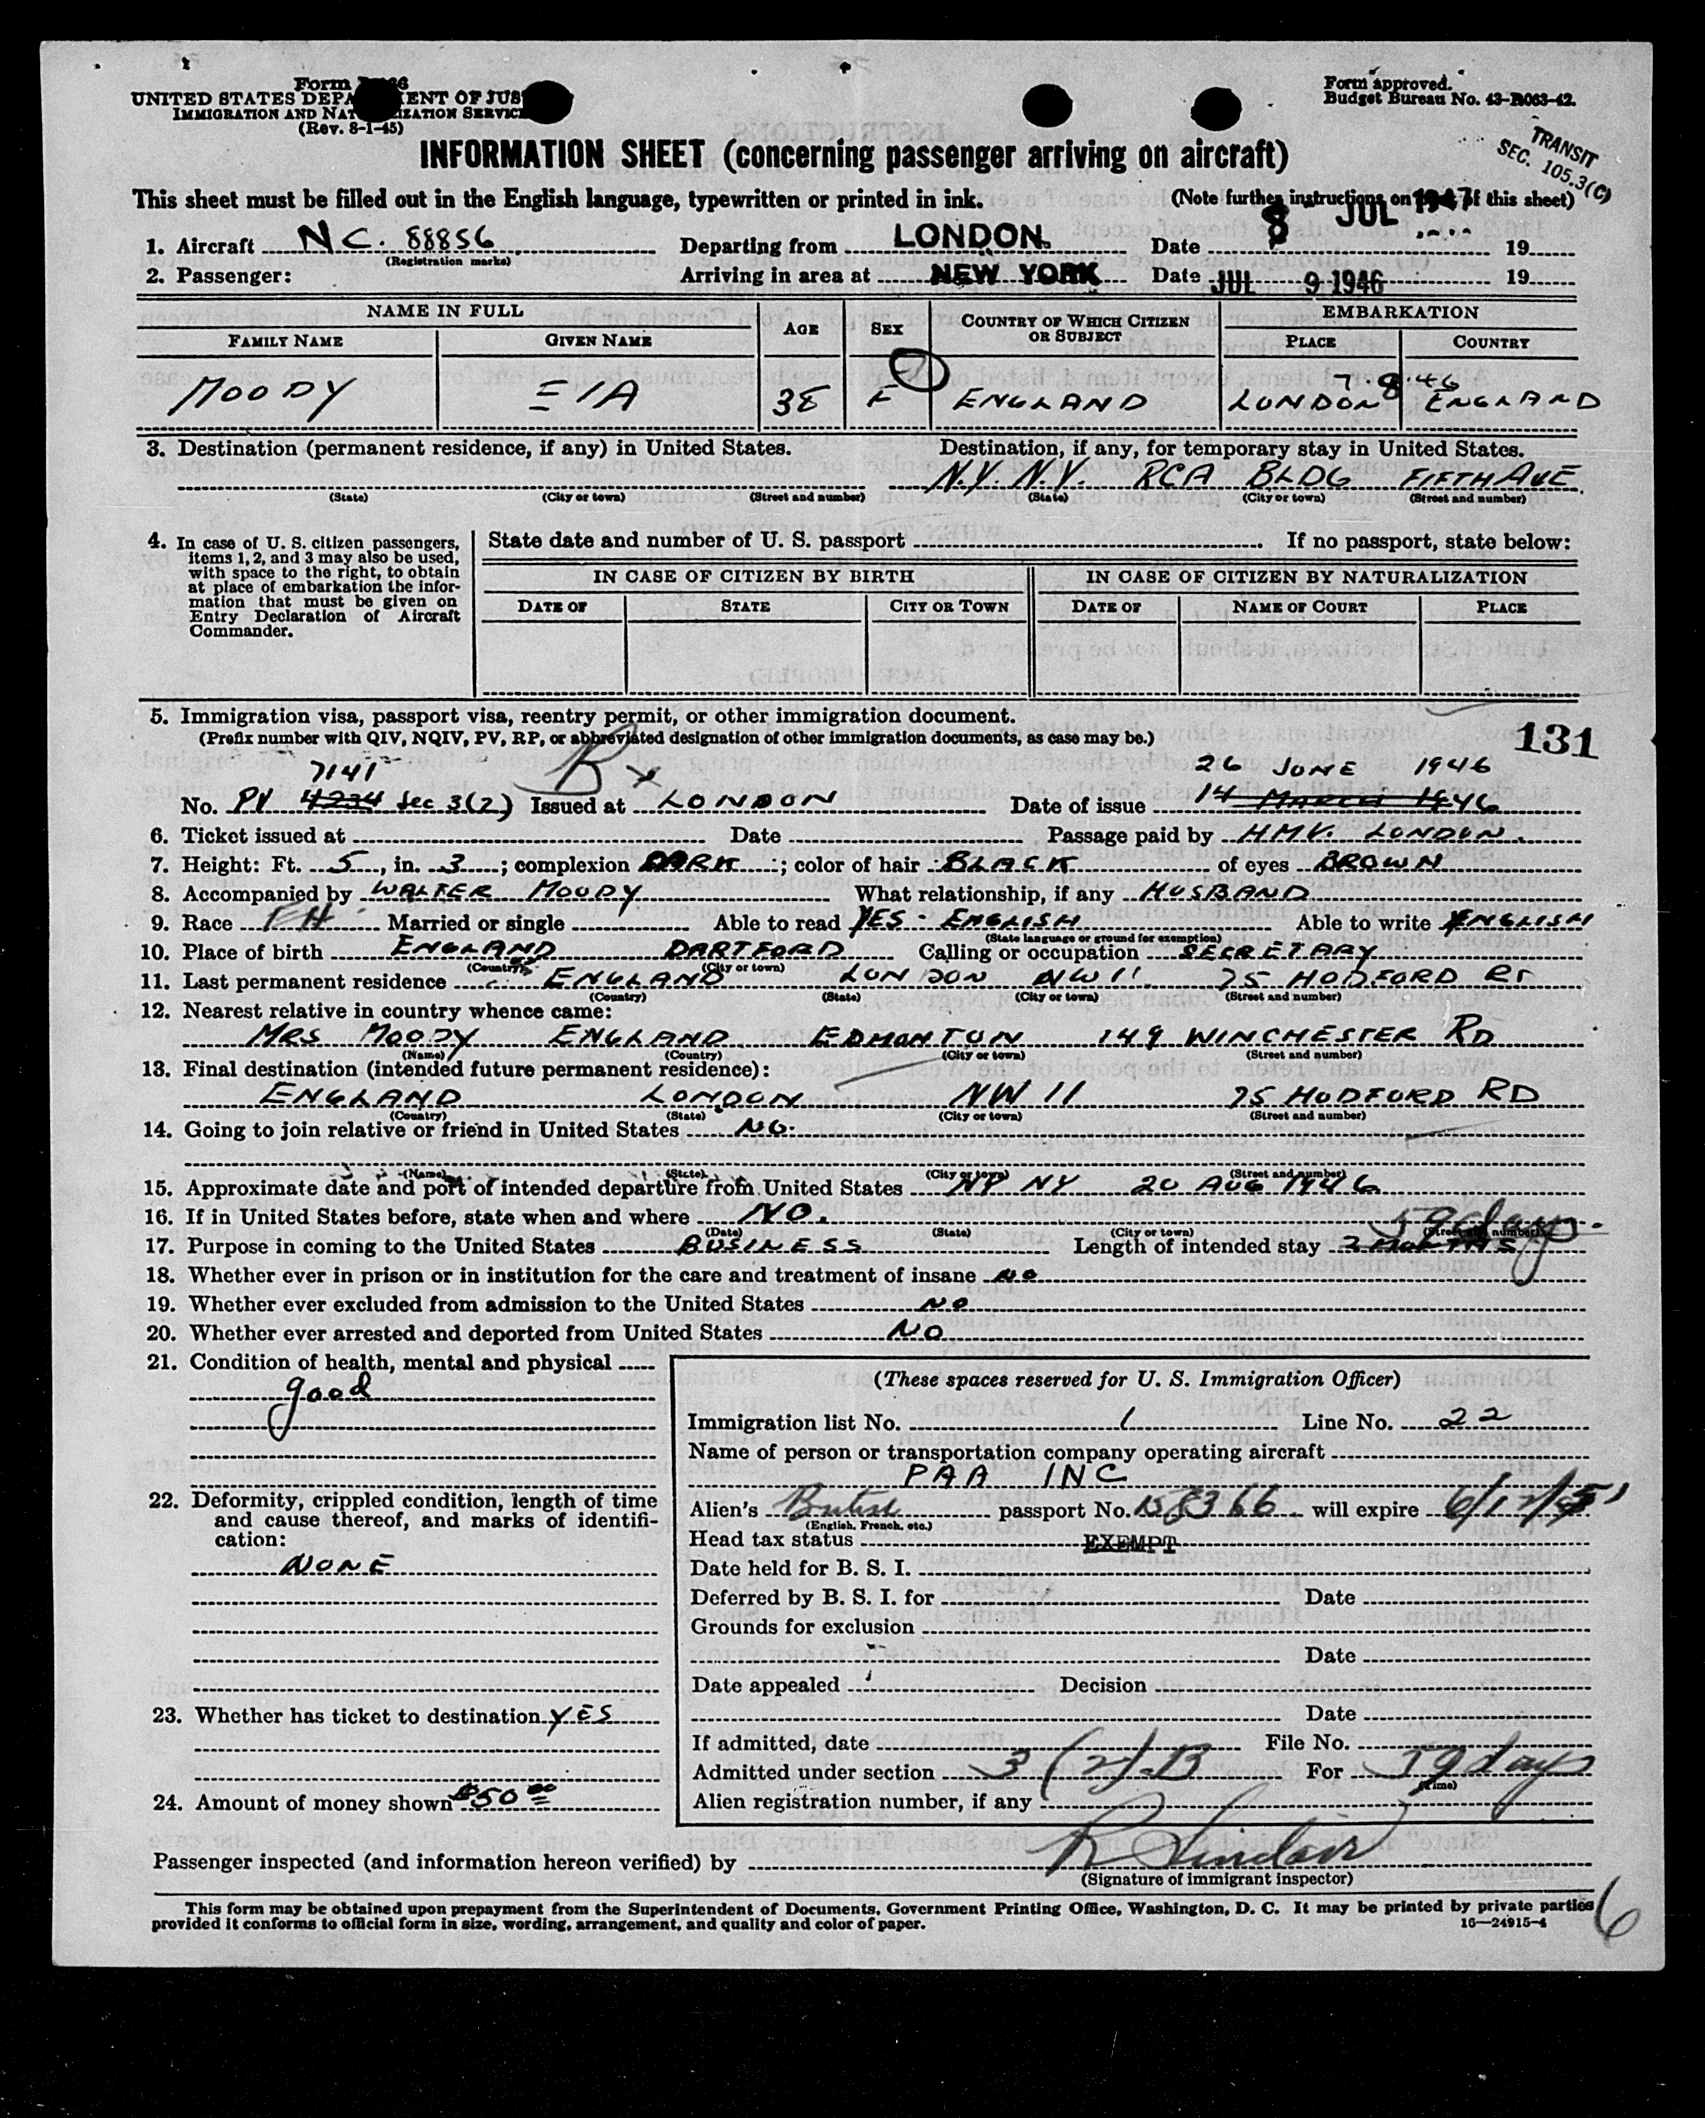 Form
UNITED STATES DEPARTMENT OF JUSTICE
IMMIGRATION AND NATURALIZATION SERVICE
(Rev. 8-1-45)
Form approved.
Budget Bureau No. 43-R063-42.
TRANSIT
SEC. 105.3(C)
INFORMATION SHEET (concerning passenger arriving on aircraft)
This sheet must be filled out in the English language, typewritten or printed in ink. (Note further instructions on of this sheet)
1. Aircraft NC. 88856 Departing from LONDON. Date 8 JUL 1947 19
(Registration marks)
2. Passenger: Arriving in area at NEW YORK Date JUL 9 1946 19
NAME IN FULL AGE SEX COUNTRY OF WHICH CITIZEN OR SUBJECT EMBARKATION
FAMILY NAME GIVEN NAME PLACE COUNTRY
7.8.46
MOODY EIA 38 F ENGLAND LONDON ENGLAND
3. Destination (permanent residence, if any) in United States. Destination, if any, for temporary stay in United States.
N.Y. N.Y. RCA BLDG FIFTH AVE.
(State) (City or town) (Street and number) (State) (City or town) (Street and number)
4. In case of U. S. citizen passengers, items 1, 2, and 3 may also be used, with space to the right, to obtain at place of embarkation the information that must be given on Entry Declaration of Aircraft Commander.
State date and number of U. S. passport If no passport, state below:
IN CASE OF CITIZEN BY BIRTH IN CASE OF CITIZEN BY NATURALIZATION
DATE OF STATE CITY OR TOWN DATE OF NAME OF COURT PLACE
5. Immigration visa, passport visa, reentry permit, or other immigration document.
(Prefix number with QIV, NQIV, PV, RP, or abbreviated designation of other immigration documents, as case may be.)
131
7141 26 JUNE 1946
No. PV 4234 Sec 3(2) Issued at LONDON Date of issue 14 MARCH 1946
6. Ticket issued at Date Passage paid by H.M.V. LONDON.
7. Height: Ft. 5, in. 3; complexion DARK; color of hair BLACK of eyes BROWN
8. Accompanied by WALTER MOODY What relationship, if any HUSBAND
9. Race Married or single Able to read YES - ENGLISH Able to write ENGLISH
(State language or ground for exemption)
10. Place of birth ENGLAND DARTFORD Calling or occupation SECRETARY
(Country) (City or town)
11. Last permanent residence ENGLAND LONDON NW11 75 HODFORD RD
(Country) (State) (City or town) (Street and number)
12. Nearest relative in country whence came:
MRS MOODY ENGLAND EDMONTON 149 WINCHESTER RD
(Name) (Country) (City or town) (Street and number)
13. Final destination (intended future permanent residence):
ENGLAND LONDON NW 11 75 HODFORD RD
(Country) (State) (City or town) (Street and number)
14. Going to join relative or friend in United States NO.
(Name) (State) (City or town) (Street and number)
15. Approximate date and port of intended departure from United States NY NY 20 AUG 1946
16. If in United States before, state when and where NO.
(Date) (State) (City or town) (Street and number)
59 days.
17. Purpose in coming to the United States BUSINESS Length of intended stay 2 MONTHS
18. Whether ever in prison or in institution for the care and treatment of insane NO
19. Whether ever excluded from admission to the United States NO
20. Whether ever arrested and deported from United States NO
21. Condition of health, mental and physical
good
22. Deformity, crippled condition, length of time and cause thereof, and marks of identification:
NONE
23. Whether has ticket to destination YES
24. Amount of money shown $50 00
(These spaces reserved for U. S. Immigration Officer)
Immigration list No. 1 Line No. 22
Name of person or transportation company operating aircraft
PAA INC
Alien's British passport No. 158366 will expire 6/12/51
(English, French, etc.)
Head tax status EXEMPT
Date held for B. S. I.
Deferred by B. S. I. for Date
Grounds for exclusion
Date
Date appealed Decision
Date
If admitted, date File No.
Admitted under section 3 (2)-B For 59 days
(Time)
Alien registration number, if any
Passenger inspected (and information hereon verified) by R Sinclair
(Signature of immigrant inspector)
This form may be obtained upon prepayment from the Superintendent of Documents, Government Printing Office, Washington, D. C. It may be printed by private parties
provided it conforms to official form in size, wording, arrangement, and quality and color of paper. 16—24915-4
6